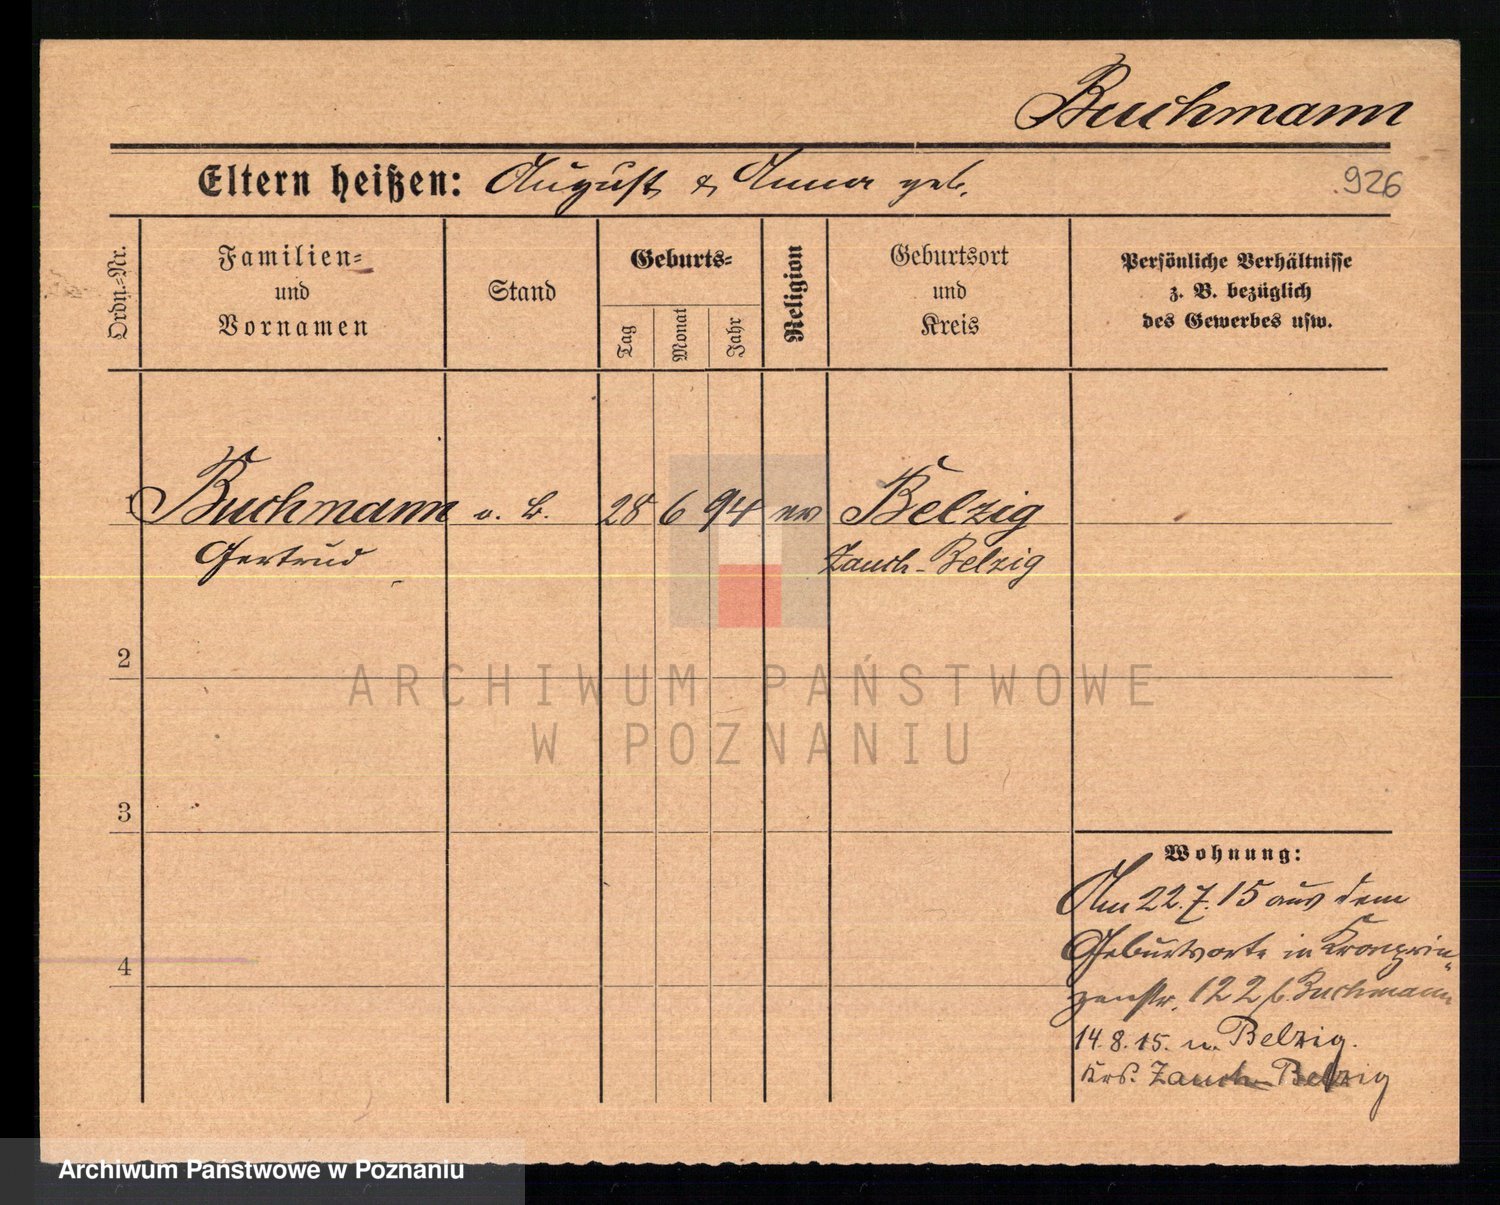 Buchmann
Eltern heißen: August & Anna geb.
926
Ordn.-Nr.
Familien-
und
Vornamen
Stand
Geburts-
Tag
Monat
Jahr
Religion
Geburtsort
und
Kreis
Persönliche Verhältnisse
z. B. bezüglich
des Gewerbes usw.
1 Buchmann o. B. 28 6 94 ev Belzig
Gertrud Zauch-Belzig
2
3
4
Wohnung:
Am 22.7.15 aus dem
Geburtsorte in Kronprin-
zenstr. 122 b. Buchmann
14.8.15. n. Belzig.
Krs. Zauch-Belzig
ARCHIWUM PAŃSTWOWE
W POZNANIU
Archiwum Państwowe w Poznaniu